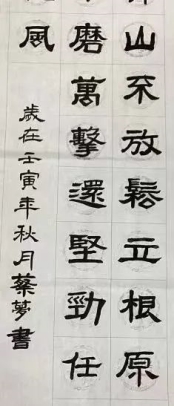 山不放鬆立根原
磨萬擊還堅勁任
風
歲在壬寅年秋月蔡夢書